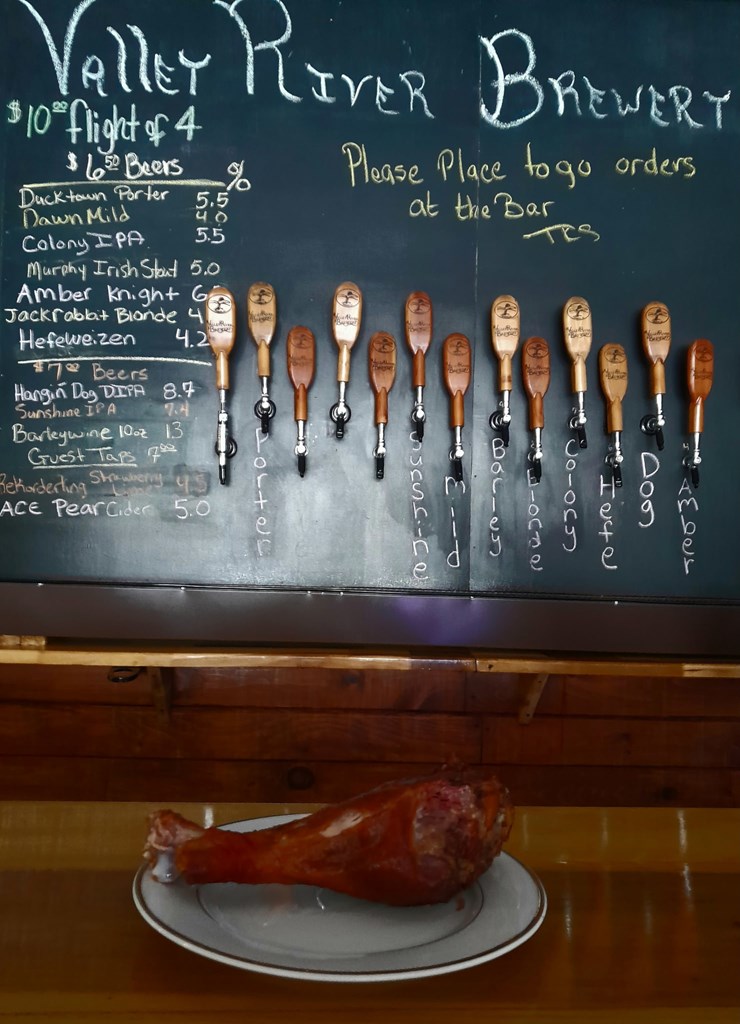 Valley River Brewery
$10.00 flight of 4
$6.50 Beers %
Ducktown Porter 5.5
Dawn Mild 4.0
Colony IPA 5.5
Murphy Irish Stout 5.0
Amber Knight 6
Jackrabbit Blonde 4
Hefeweizen 4.2
$7.00 Beers
Hangin Dog DIPA 8.7
Sunshine IPA 7.4
Barleywine 10oz 13
Guest Taps 7.00
Rekorderling Strawberry 4.5
ACE Pear Cider 5.0
Please Place to go orders
at the Bar
Porter
Sunshine
Mild
Barley
Blonde
Colony
Hefe
Dog
Amber